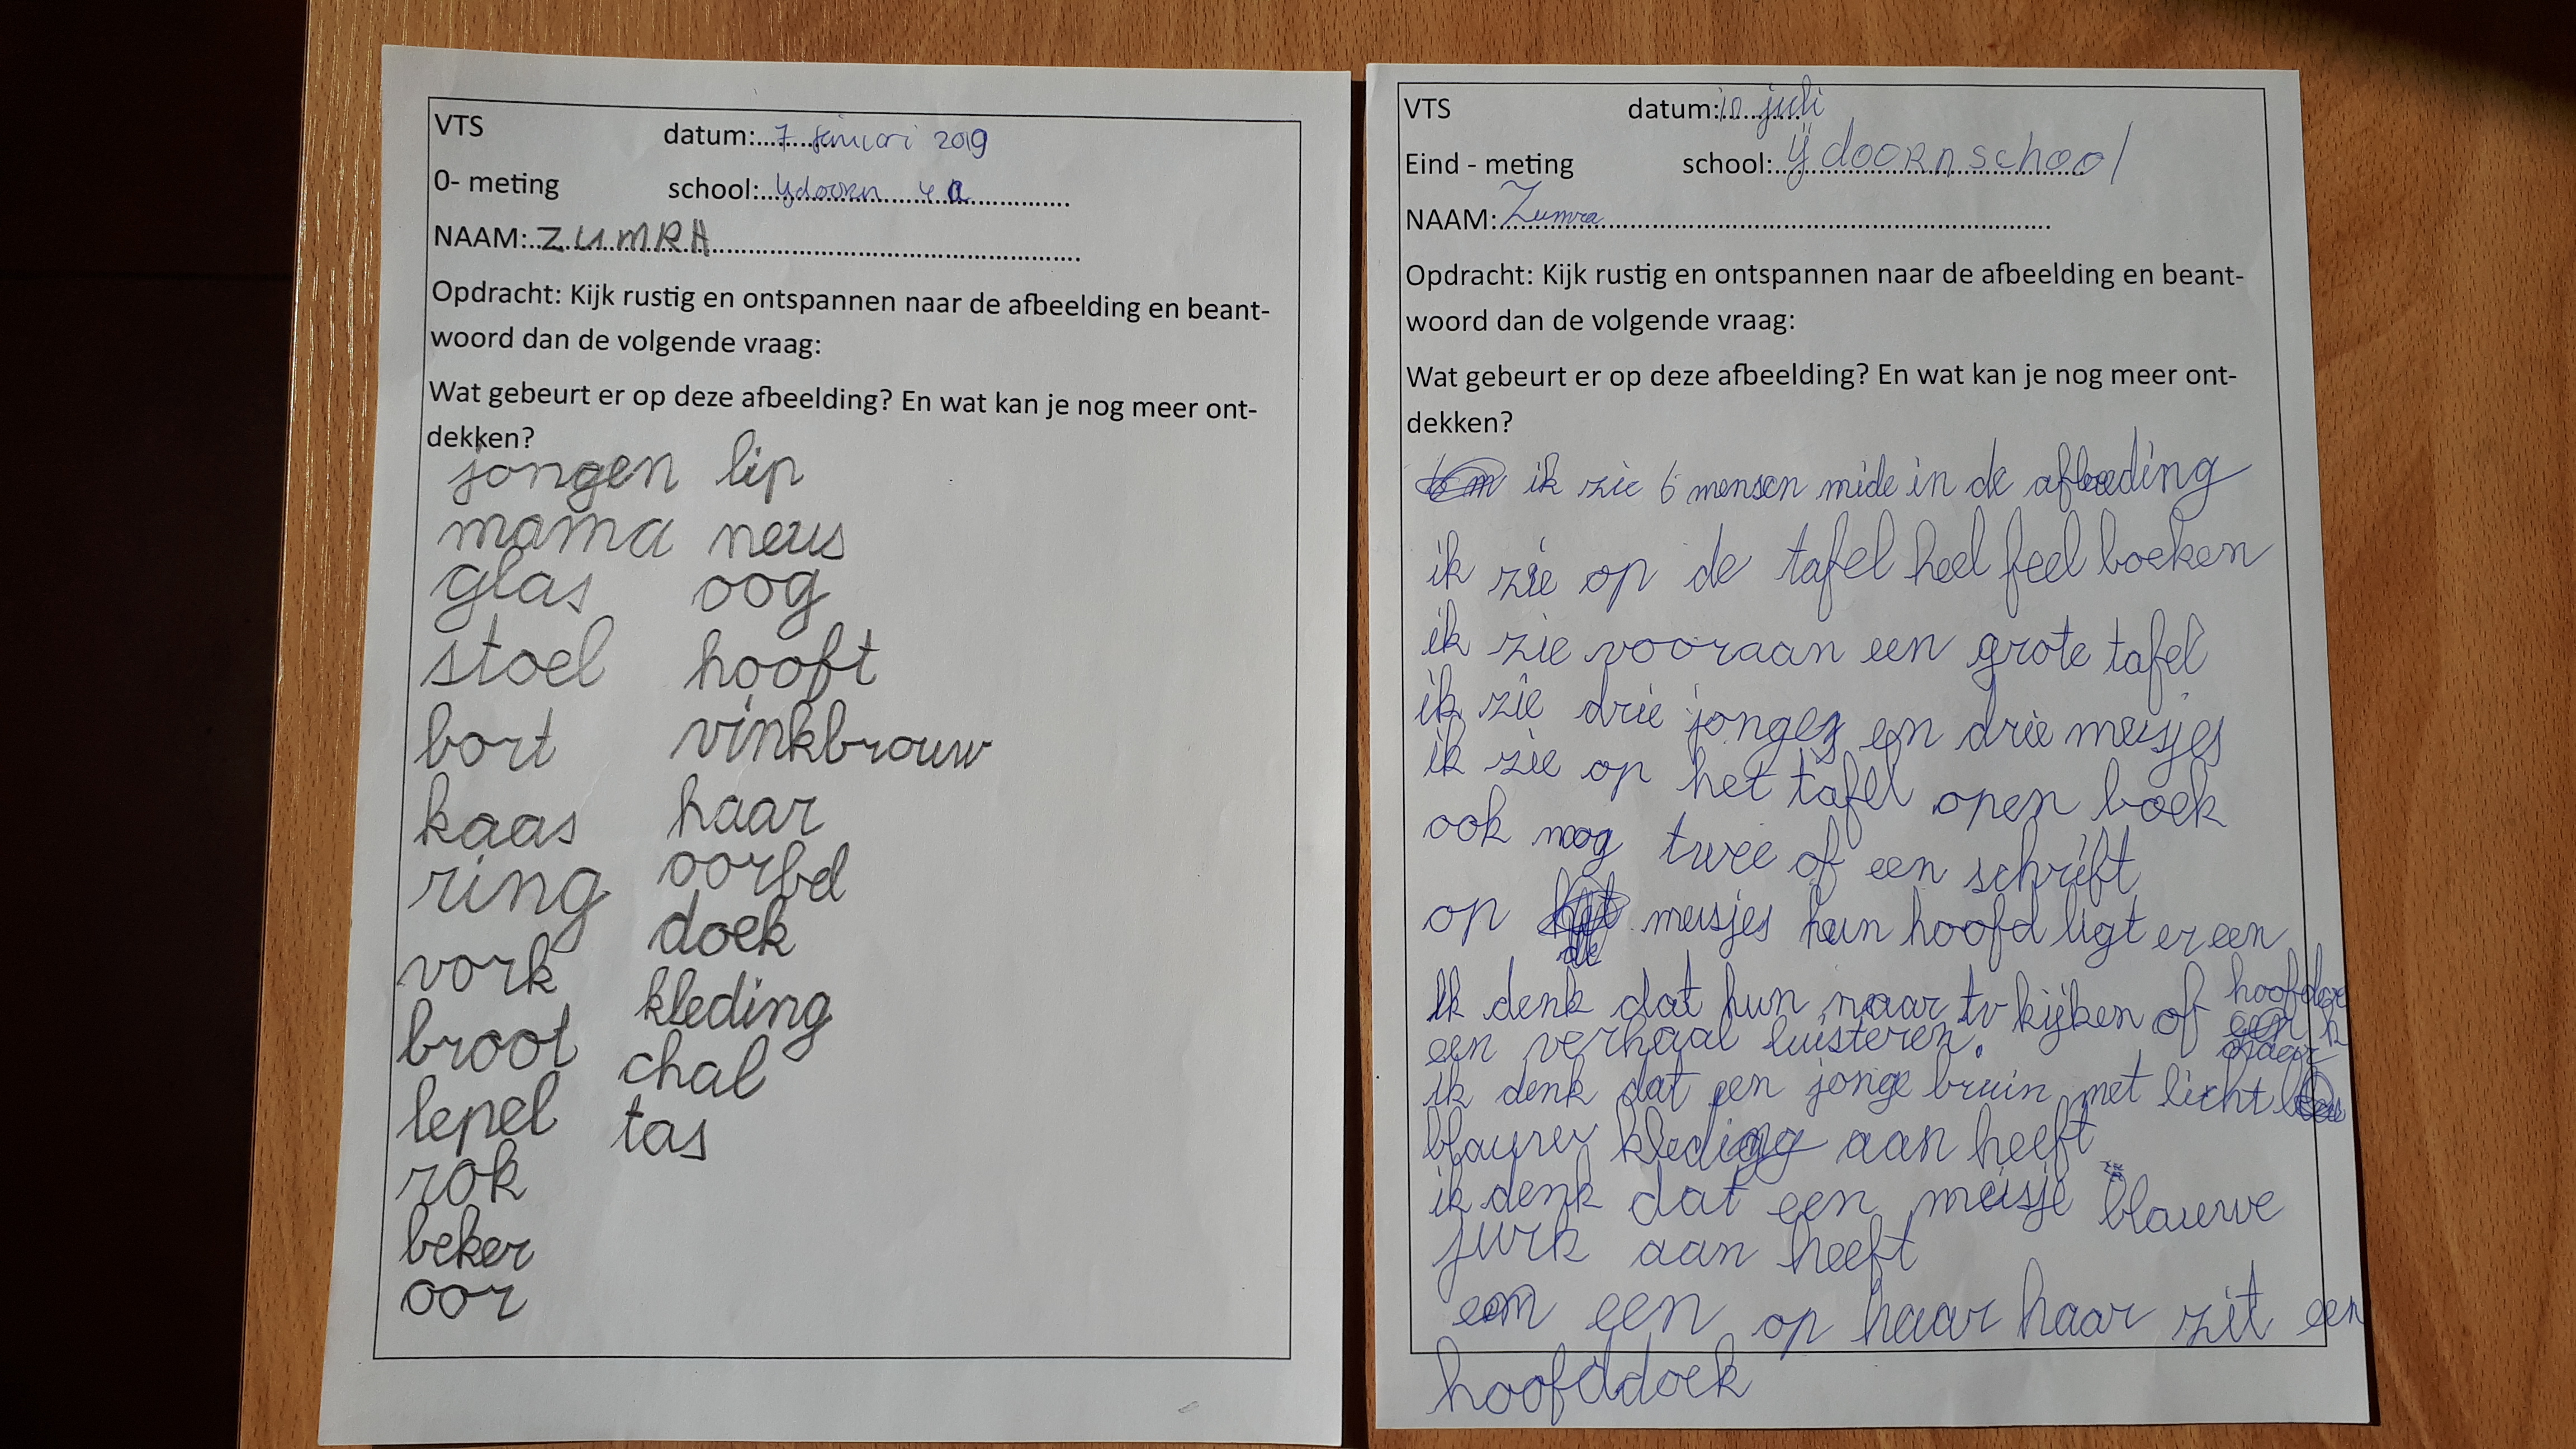 VTS datum:.... 7 januari 2019
0- meting school:.... ydoorn 4a
NAAM:.... ZUMRA
Opdracht: Kijk rustig en ontspannen naar de afbeelding en beant-
woord dan de volgende vraag:
Wat gebeurt er op deze afbeelding? En wat kan je nog meer ont-
dekken?
jongen lip
mama neus
glas oog
stoel hooft
bort vinkbrouw
kaas haar
ring oorbel
vork doek
broot kleding
lepel chal
rok tas
beker
oor
VTS datum:.... juli
Eind - meting school:.... ijdoornschool
NAAM:.... Zumra
Opdracht: Kijk rustig en ontspannen naar de afbeelding en beant-
woord dan de volgende vraag:
Wat gebeurt er op deze afbeelding? En wat kan je nog meer ont-
dekken?
ik zie 6 mensen mide in de afbeeding
ik zie op de tafel heel feel boeken
ik zie vooraan een grote tafel
ik zie drie jonges en drie meisjes
ik zie op het tafel open boek
ook nog twee of een schrift
op de meisjes hun hoofd ligt er een
hoofddoe
ik denk dat hun naar tv kijken of
een verhaal luisteren.
ik denk dat een jonge bruin met licht
blauwer kleding aan heeft
ik denk dat een meisje blauwe
jurk aan heeft
een op haar haar zit een
hoofddoek